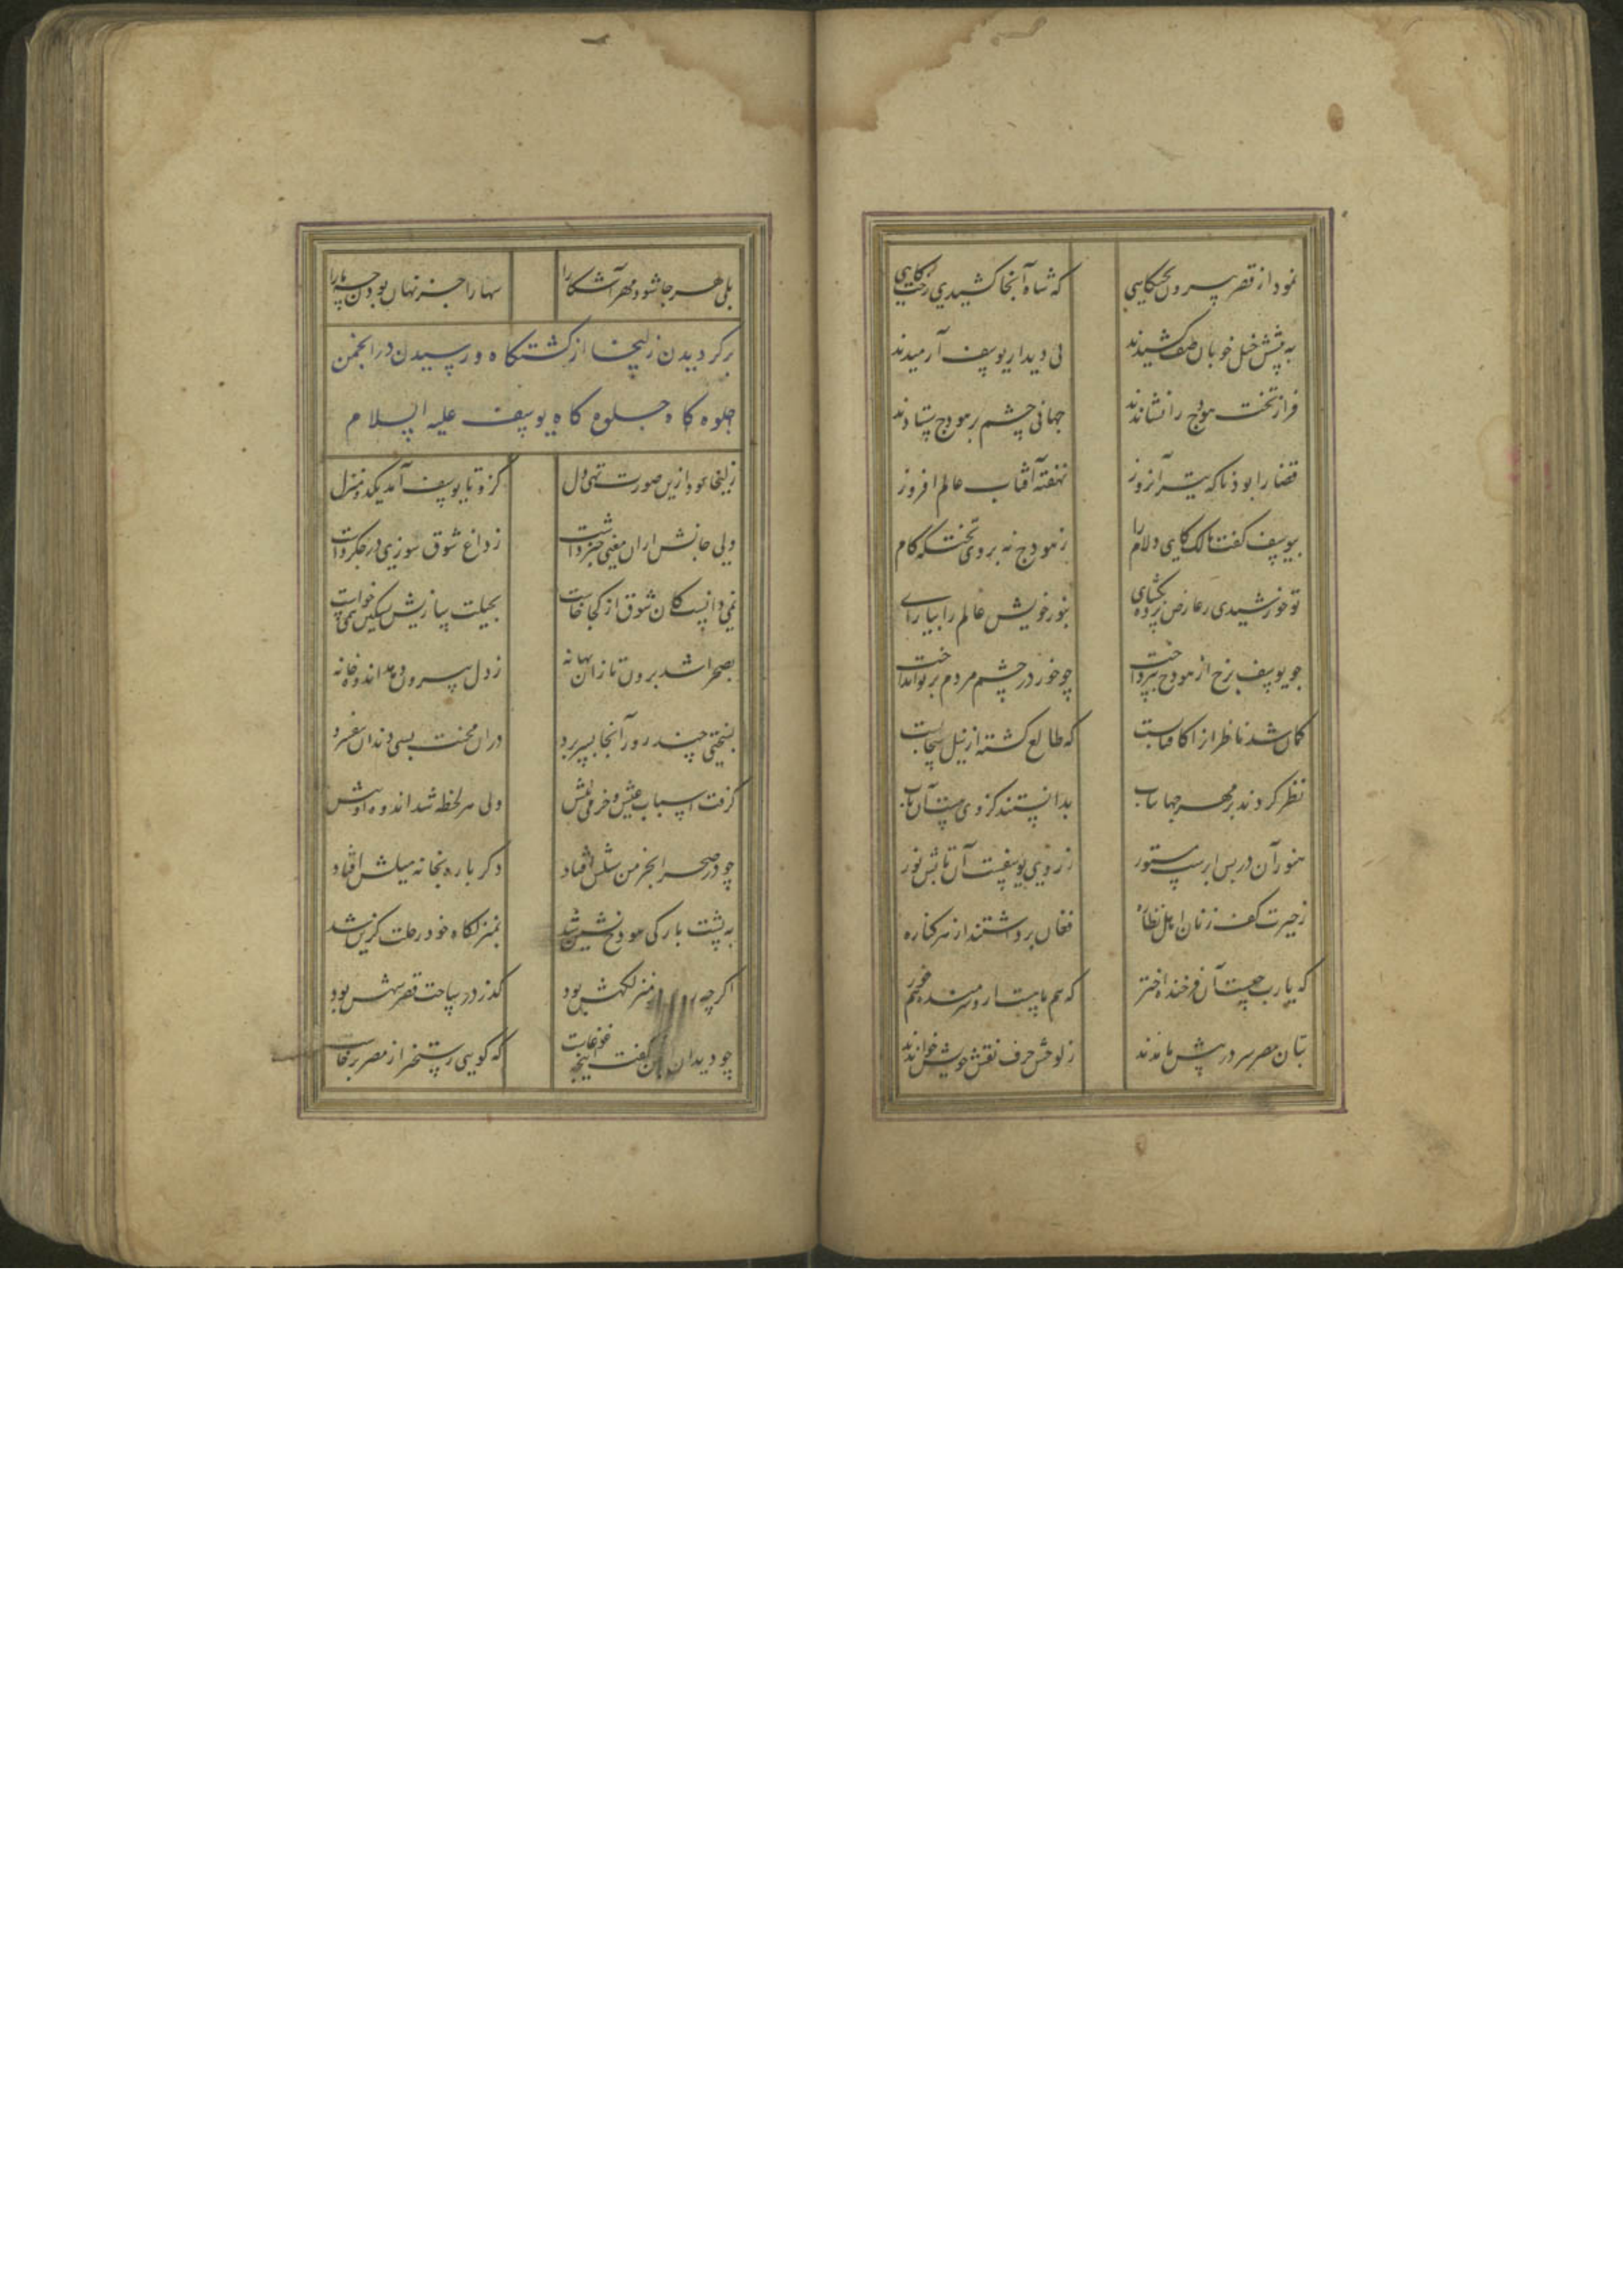 نمود از قصر بیرون تکیه کاهی که شاه آنجا کشیدی رخت کاهی
به پیشش خیل خوبان صف کشیدند پی دیدار یوسف آرمیدند
فراز تخت هودج را نشاندند جهانی چشم بر هودج ستادند
قضا را بود ناکه تیره آن روز نهفته آفتاب عالم افروز
بیوسف گفت مالک کای دلارام ز هودج نه بروی تختکه کام
تو خورشیدی ز عارض پرده بکشای بنور خویش عالم را بیارای
چو یوسف برخ از هودج بپرداخت چو خور در چشم مردم پرتو انداخت
کمان شد ناظران را کافتابست که طالع کشته از نیلی سحابست
نظر کردند بر مهر جهانتاب بدانستند کز وی نیست آن تاب
هنوز آن در پس ابرست مستور ز روی یوسفست آن تابش نور
ز حیرت کف زنان اهل نظاره فغان برداشتند از هر کناره
که یارب چیست آن فرخنده اختر که هم ماهست ازو شرمنده هم خور
بتان مصر سر در پیش ماندند ز لوحش حرف نقش خویش خواندند
بلی هر جا شود مهر آشکارا سها را جز نهان بودن چه یارا
برکردیدن زلیخا از کشتکاه و رسیدن در انجمن
جلوه کاه جلوه کاه یوسف علیه السلام
زلیخا بود ازین صورت تهی دل کزو تا یوسف آمد یک دو منزل
ولی جانش ازان معنی خبر داشت ز داغ شوق سوزی در جکر داشت
نمی دانست کان شوق از کجا خاست بحیلت سازیش تسکین همی خواست
بصحرا شد برون تا زان بهانه ز دل بیرون دهد اندوه خانه
بسختی چند روز آنجا بسر برد دران محنت بسی دندان بیفشرد
کرفت اسباب عیش و خرمی پیش ولی هر لحظه شد اندوه او بیش
چو در صحرا بخرمن سیلش افتاد دکر باره بخانه میلش افتاد
به پشت بارکی هودج نشین شد بمنزلکاه خود رحلت کزین شد
اکرچه روی در منزلکهش بود کذر در ساحت قصر شهش بود
چو دید آن انجمن گفت این چه غوغاست که کویی رستخیز از مصر برخاست